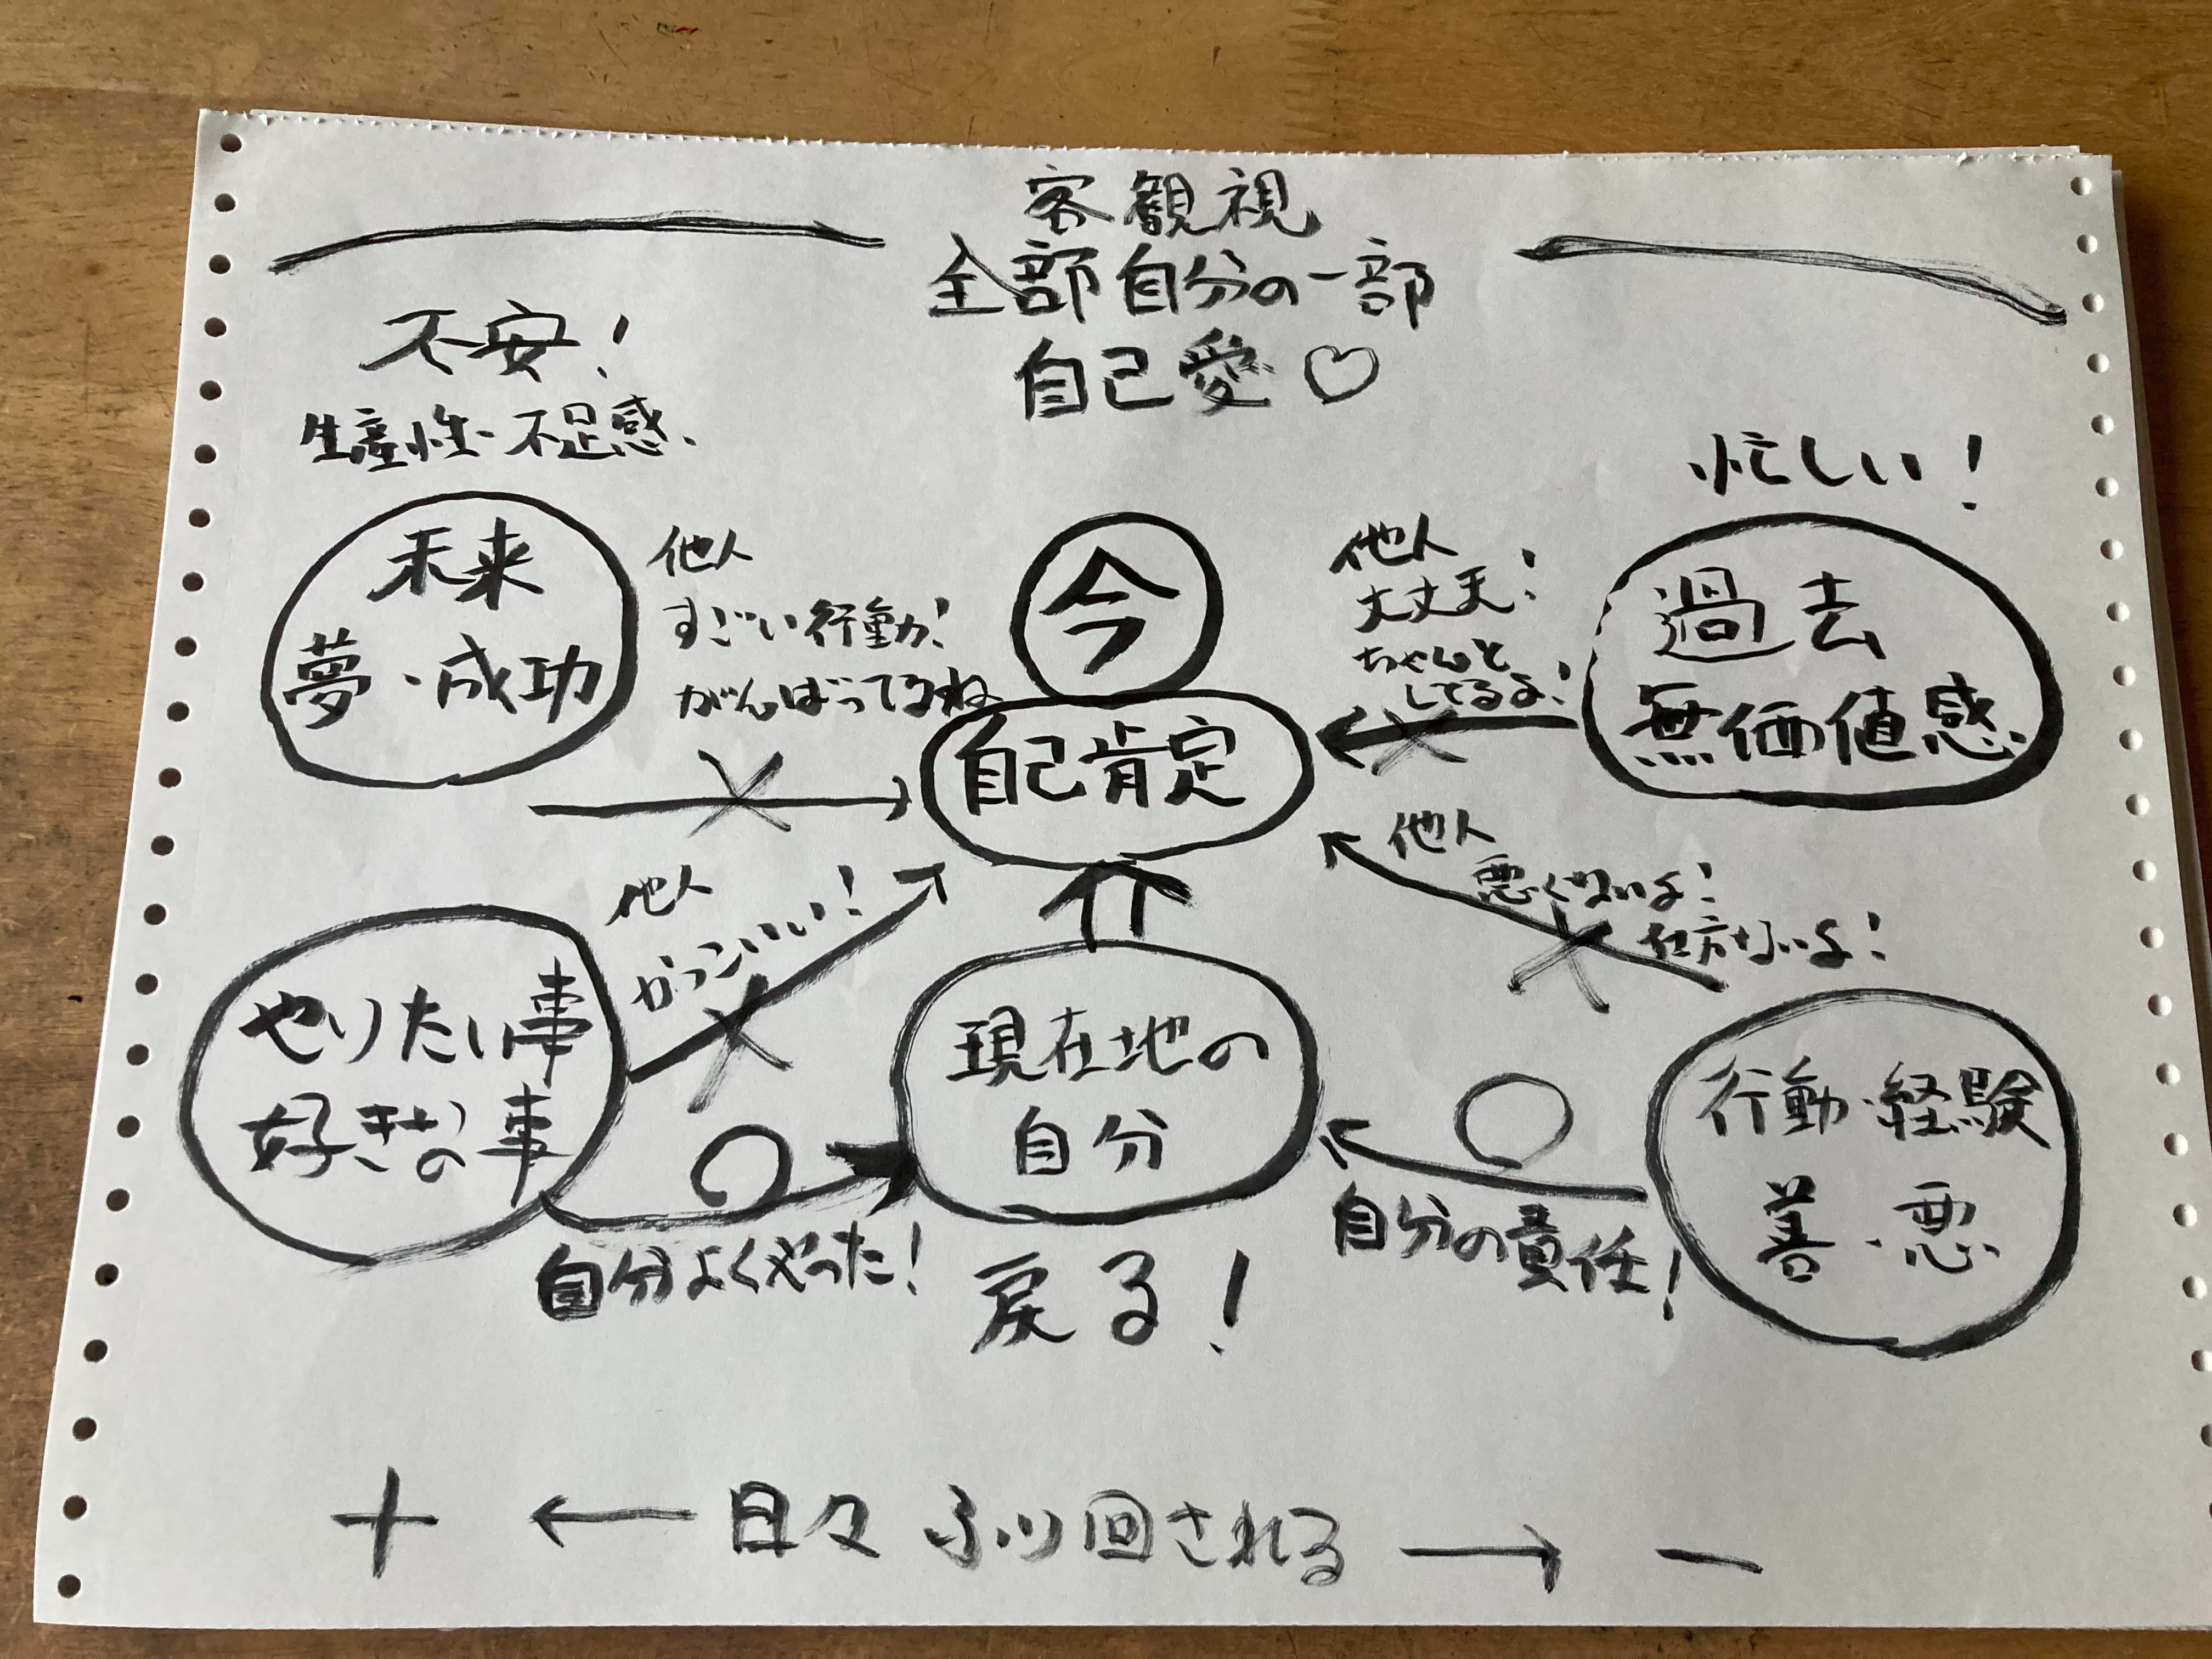 客観視
全部自分の一部
自己愛♡
不安!
生産性・不足感
忙しい!
未来
夢・成功
他人
すごい行動!
がんばってるね
今
自己肯定
他人
大丈夫!
ちゃんと
してるよ!
過去
無価値感
他人
かっこいい!
他人
悪くないよ!
仕方ないよ!
やりたい事
好きなの事
現在地の
自分
行動・経験
善・悪
自分よくやった!
自分の責任!
戻る!
+ ← 日々 ふり回される → −